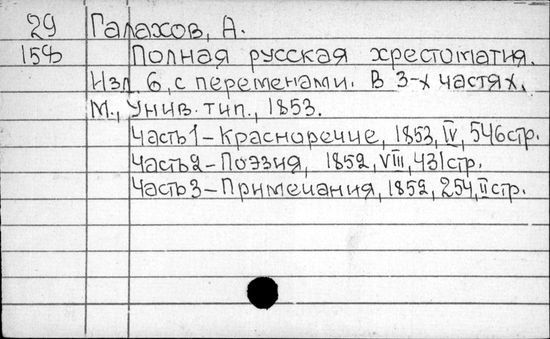 29 Галахов, А.
158 Полная русская хрестоматия.
Изд. 6, с переменами. В 3-х частях.
М., Унив. тип., 1853.
Часть 1 – Красноречие, 1853, IV, 546 стр.
Часть 2 – Поэзия, 1852, VIII, 431 стр.
Часть 3 – Примечания, 1852, 254, II стр.